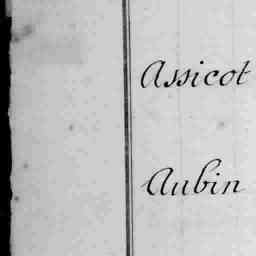 Assicot
Aubin